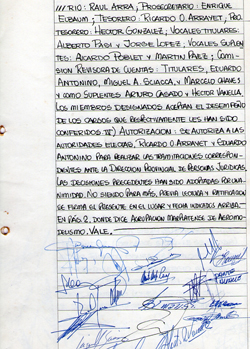 ///RIO: RAUL ARRA, PROSECRETARIO: ENRIQUE
EUBAUM; TESORERO: RICARDO O. ARRAYET, PRO-
TESORERO: HECTOR GONZALEZ; VOCALES TITULARES:
ALBERTO PAGI Y JORGE LOPEZ; VOCALES SUPLEN-
TES: RICARDO POBLET Y MARTIN PAEZ; COMI-
SION REVISORA DE CUENTAS: TITULARES, EDUARDO
ANTONINO, MIGUEL A. SCIACCA, Y MARCELO CHAVES
Y COMO SUPLENTES ARTURO CASADO Y HECTOR VANELLA.
LOS MIEMBROS DESIGNADOS ACEPTAN EL DESEMPEÑO
DE LOS CARGOS QUE RESPECTIVAMENTE LES HAN SIDO
CONFERIDOS. IV) AUTORIZACION: SE AUTORIZA A LAS
AUTORIDADES ELECTAS, RICARDO O. ARRAYET Y EDUARDO
ANTONINO PARA REALIZAR LAS TRAMITACIONES CORRESPON-
DIENTES ANTE LA DIRECCION PROVINCIAL DE PERSONAS JURIDICAS,
LAS DECISIONES PRECEDENTES HAN SIDO ADOPTADAS POR UNA-
NIMIDAD. NO SIENDO PARA MAS, PREVIA LECTURA Y RATIFICACION
SE FIRMA EL PRESENTE EN EL LUGAR Y FECHA INDICADOS ARRIBA.
EN PAG. 2, DONDE DICE AGRUPACION MARPLATENSE DE AEROMO-
DELISMO. VALE.